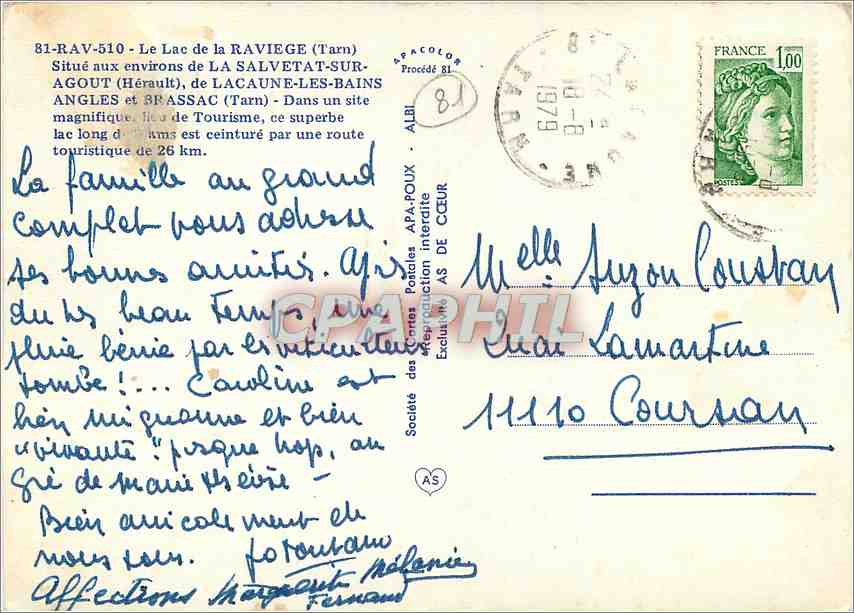 81-RAV-510 - Le Lac de la RAVIEGE (Tarn)
Situé aux environs de LA SALVETAT-SUR-
AGOUT (Hérault), de LACAUNE-LES-BAINS
ANGLES et BRASSAC (Tarn) - Dans un site
magnifique, lieu de Tourisme, ce superbe
lac long de kms est ceinturé par une route
touristique de 26 km.
La famille au grand
complet vous adresse
ses bonnes amitiés. Après
du très beau temps, une
pluie bénie par les viticulteurs
tombe !... Caroline est
bien mignonne et bien
"vivante" presque trop, au
gré de Marie Thérèse -
Bien amicalement de
nous tous.
Affections Marguerite Mélanie
Fernand
APACOLOR
Procédé 81
81
Société des Cartes Postales APA-POUX - ALBI
Reproduction interdite
Exclusivité AS DE CŒUR
AS
LACAUNE
18-8
1979
TARN
FRANCE
1,00
POSTES
Melle Suzon Coustan
Quai Lamartine
11110 Coursan
CPAPHIL